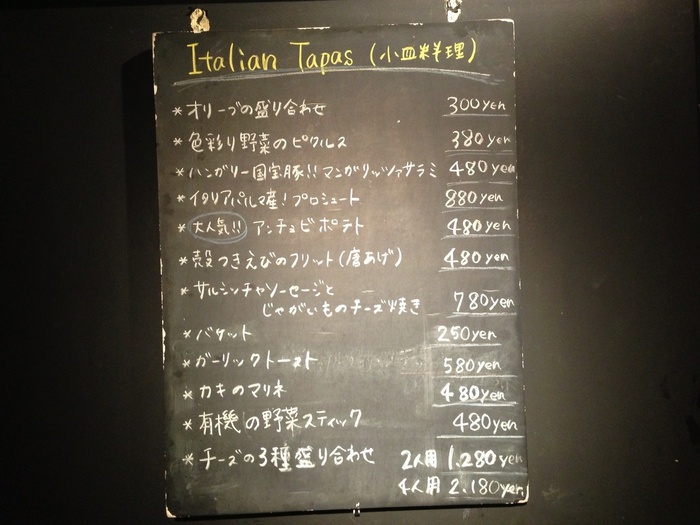 Italian Tapas (小皿料理)
* オリーブの盛り合わせ 300yen
* 色彩り野菜のピクルス 380yen
* ハンガリー国宝豚!! マンガリッツァサラミ 480yen
* イタリアパルマ産! プロシュート 880yen
* 大人気!! アンチョビポテト 480yen
* 殻つきえびのフリット(唐あげ) 480yen
* サルシッチャソーセージと
じゃがいものチーズ焼き 780yen
* バケット 250yen
* ガーリックトースト 580yen
* カキのマリネ 480yen
* 有機の野菜スティック 480yen
* チーズの3種盛り合わせ 2人用 1.280yen
4人用 2.180yen